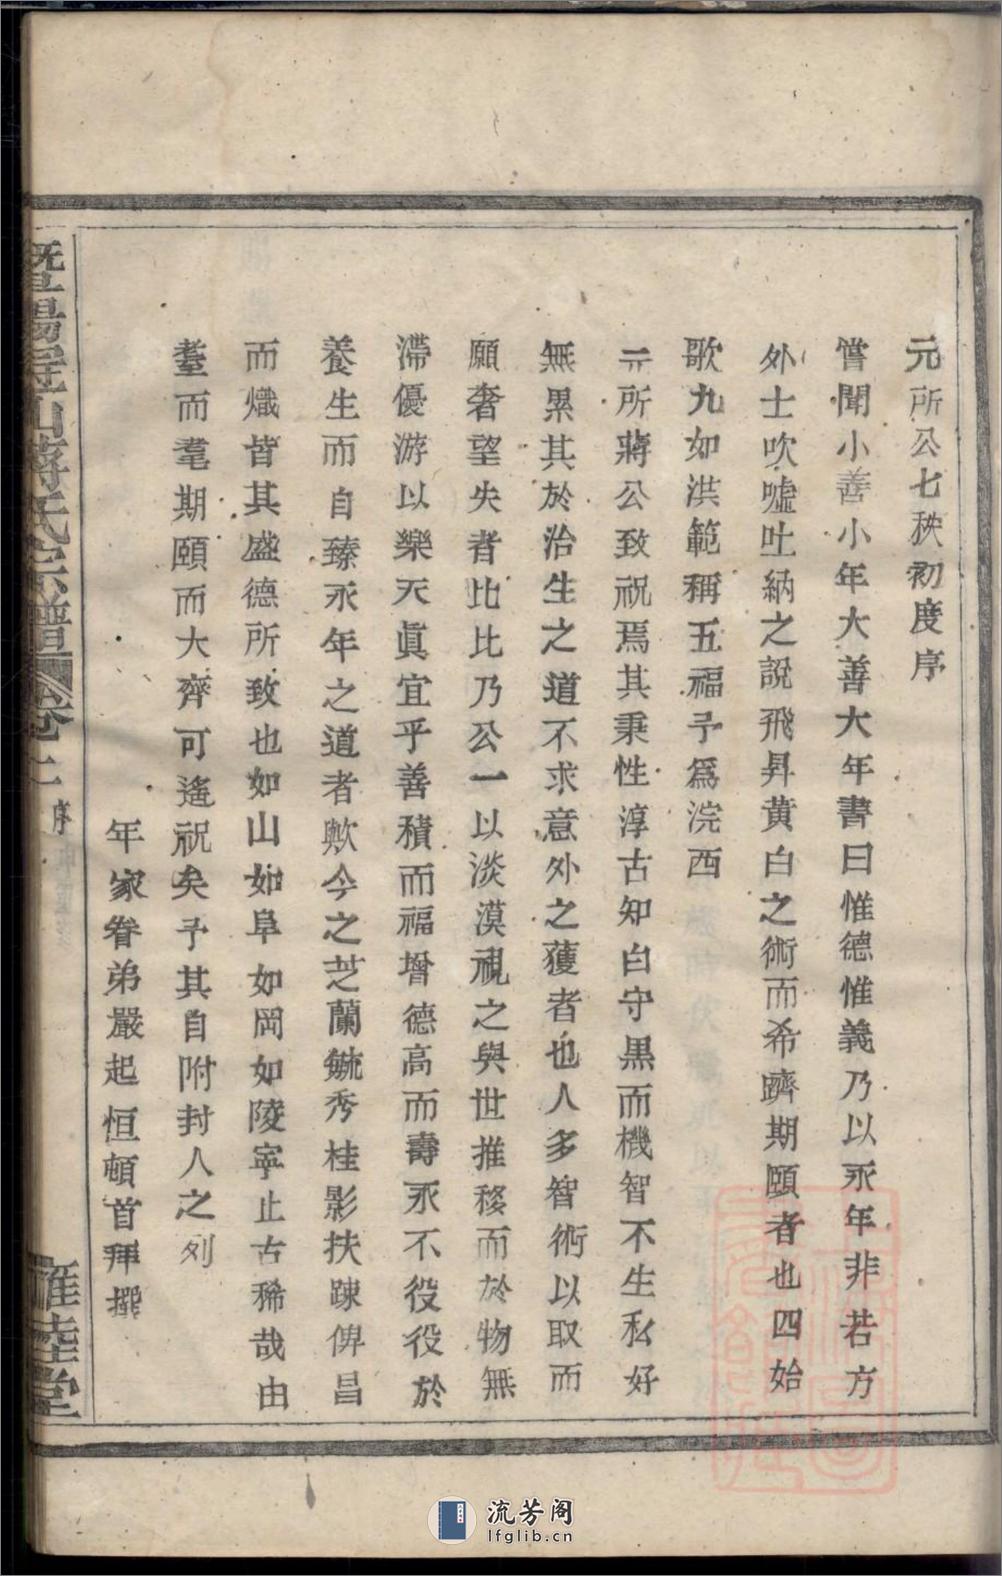 元所公七秩初度序
嘗聞小善小年大善大年書曰惟德惟義乃以永年非若方
外士吹噓吐納之說飛昇黃白之術而希躋期頤者也四始
歌九如洪範稱五福予爲浣西
元所蔣公致祝焉其秉性淳古知白守黑而機智不生私好
無累其於治生之道不求意外之獲者也人多智術以取而
願奢望失者比比乃公一以淡漠視之與世推移而於物無
滯優游以樂天眞宜乎善積而福增德高而壽永不役役於
養生而自臻永年之道者歟今之芝蘭毓秀桂影扶踈俾昌
而熾皆其盛德所致也如山如阜如岡如陵寧止古稀哉由
耋而耄期頤而大齊可遙祝矣予其自附封人之列
年家眷弟嚴起恒頓首拜撰
暨陽 山蔣氏宗譜 卷 序
雍睦堂
流芳阁
lfglib.cn